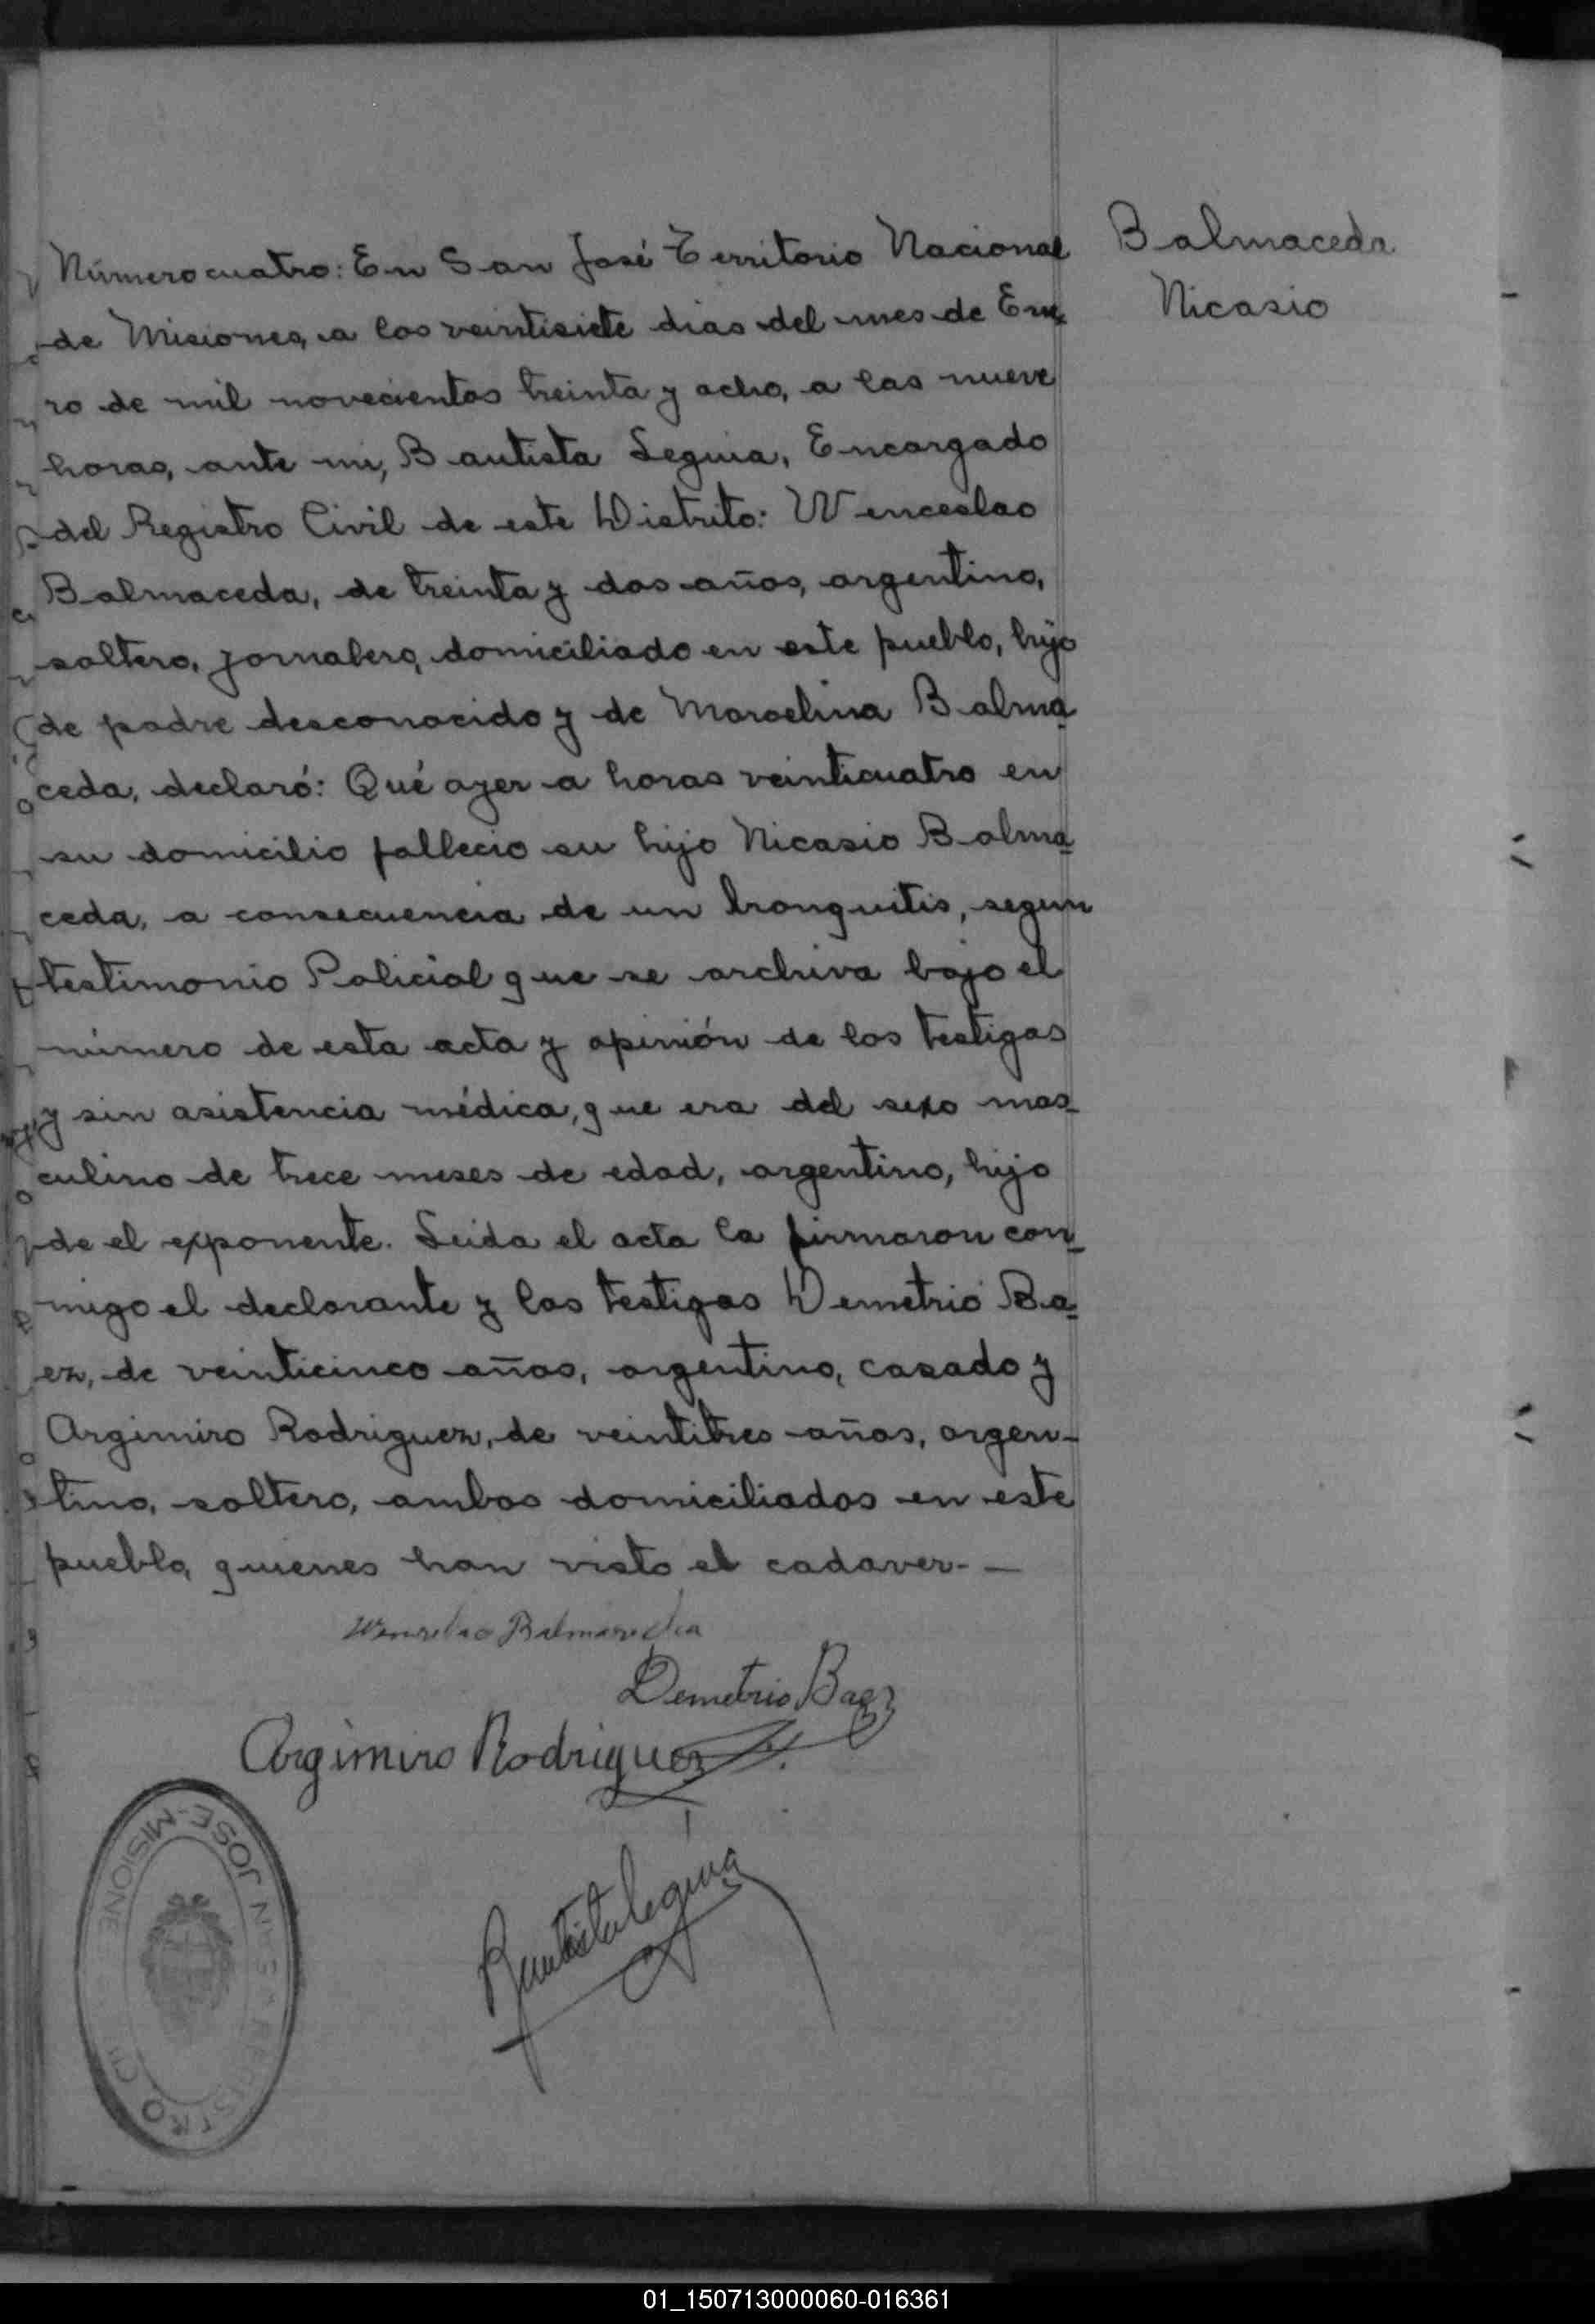 Balmaceda
Nicasio
Número cuatro: En San José Territorio Nacional
de Misiones, a los veintisiete dias del mes de Ene
ro de mil novecientos treinta y ocho, a las nueve
horas, ante mi, Bautista Leguia, Encargado
del Registro Civil de este Distrito: Wenceslao
Balmaceda, de treinta y dos años, argentino,
soltero, jornalero, domiciliado en este pueblo, hijo
de padre desconocido y de Marcelina Balma
ceda, declaró: Qué ayer a horas veinticuatro en
su domicilio fallecio su hijo Nicasio Balma
ceda, a consecuencia de un bronquitis, segun
testimonio Policial que se archiva bajo el
número de esta acta y opinión de los testigos
y sin asistencia médica, que era del sexo mas-
culino de trece meses de edad, argentino, hijo
de el exponente. Leida el acta la firmaron con-
migo el declarante y los testigos Demetrio Ba-
ez, de veinticinco años, argentino, casado y
Argimiro Rodriguez, de veintitres años, argen-
tino, soltero, ambos domiciliados en este
pueblo, quienes han visto el cadaver.-
Wenselao Balmaceda
Demetrio Baez
Argimiro Rodriguez
Bautista Leguia
SAN JOSE-MISIONE
REGISTRO CIV
01_150713000060-016361